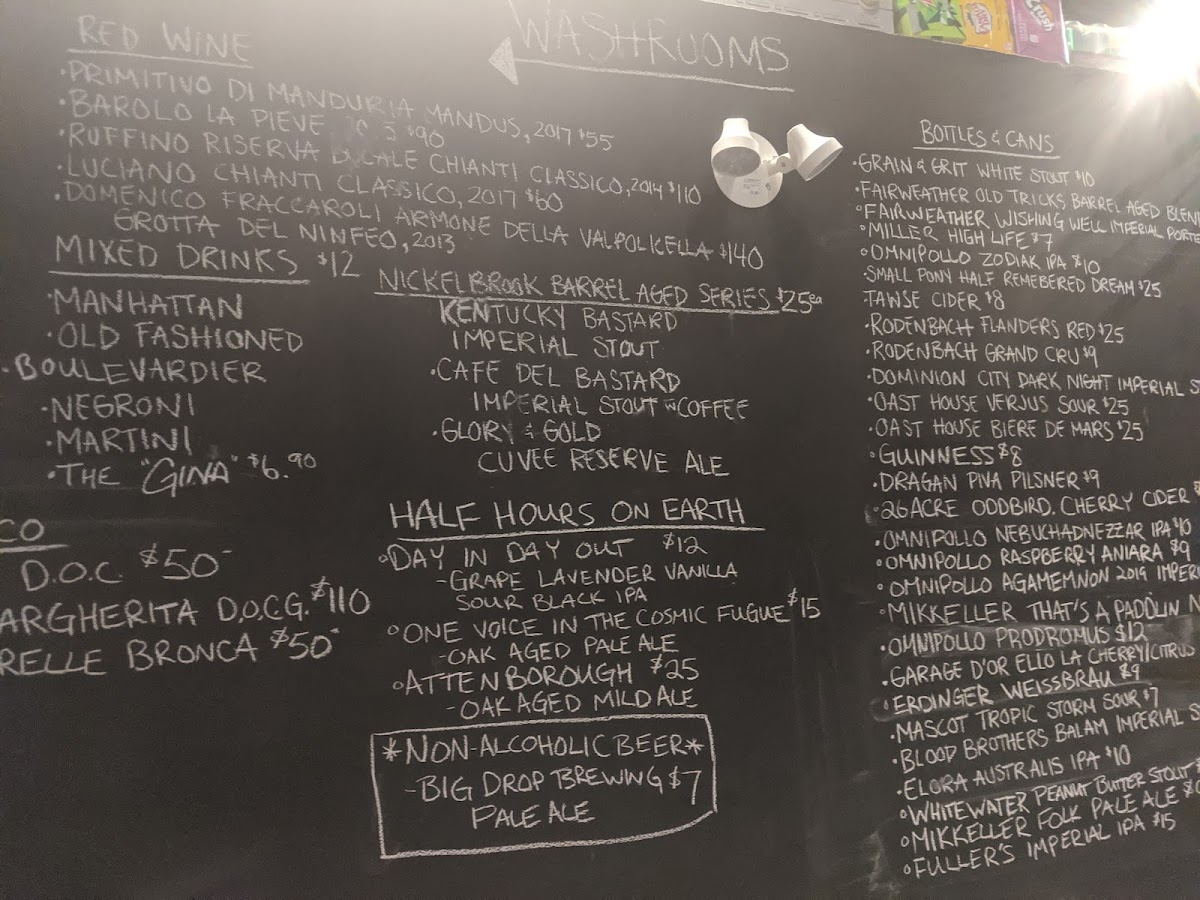 WASHROOMS
RED WINE
·PRIMITIVO DI MANDURIA MANDUS, 2017 $55
·BAROLO LA PIEVE $90
·RUFFINO RISERVA DUCALE CHIANTI CLASSICO, 2014 $110
·LUCIANO CHIANTI CLASSICO, 2017 $60
·DOMENICO FRACCAROLI ARMONE DELLA VALPOLICELLA $140
GROTTA DEL NINFEO, 2013
MIXED DRINKS $12
·MANHATTAN
·OLD FASHIONED
·BOULEVARDIER
·NEGRONI
·MARTINI
·THE "GINA" $6.90
CO
D.O.C. $50-
ARGHERITA D.O.C.G. $110
RELLE BRONCA $50-
NICKELBROOK BARREL AGED SERIES $25ea
KENTUCKY BASTARD
IMPERIAL STOUT
·CAFE DEL BASTARD
IMPERIAL STOUT w COFFEE
·GLORY & GOLD
CUVEE RESERVE ALE
HALF HOURS ON EARTH
·DAY IN DAY OUT $12
-GRAPE LAVENDER VANILLA
SOUR BLACK IPA
·ONE VOICE IN THE COSMIC FUGUE $15
-OAK AGED PALE ALE
·ATTENBOROUGH $25
-OAK AGED MILD ALE
*NON-ALCOHOLIC BEER*
-BIG DROP BREWING $7
PALE ALE
BOTTLES & CANS
·GRAIN & GRIT WHITE STOUT $10
·FAIRWEATHER OLD TRICKS BARREL AGED BLEN
·FAIRWEATHER WISHING WELL IMPERIAL PORTE
·MILLER HIGH LIFE $7
·OMNIPOLLO ZODIAK IPA $10
·SMALL PONY HALF REMEBERED DREAM $25
·TAWSE CIDER $8
·RODENBACH FLANDERS RED $25
·RODENBACH GRAND CRU $9
·DOMINION CITY DARK NIGHT IMPERIAL S
·OAST HOUSE VERJUS SOUR $25
·OAST HOUSE BIERE DE MARS $25
·GUINNESS $8
·DRAGAN PIVA PILSNER $9
·26 ACRE ODDBIRD. CHERRY CIDER $
·OMNIPOLLO NEBUCHADNEZZAR IPA $10
·OMNIPOLLO RASPBERRY ANIARA $9
·OMNIPOLLO AGAMEMNON 2019 IMPERI
·MIKKELLER THAT'S A PADDLIN
·OMNIPOLLO PRODROMUS $12
·GARAGE D'OR ELLO LA CHERRY/CITRUS
·ERDINGER WEISSBRÄU $9
·MASCOT TROPIC STORM SOUR $7
·BLOOD BROTHERS BALAM IMPERIAL S
·ELORA AUSTRALIS IPA $10
·WHITEWATER PEANUT BUTTER STOUT $
·MIKKELLER FOLK PALE ALE
·FULLER'S IMPERIAL IPA $15
Crush